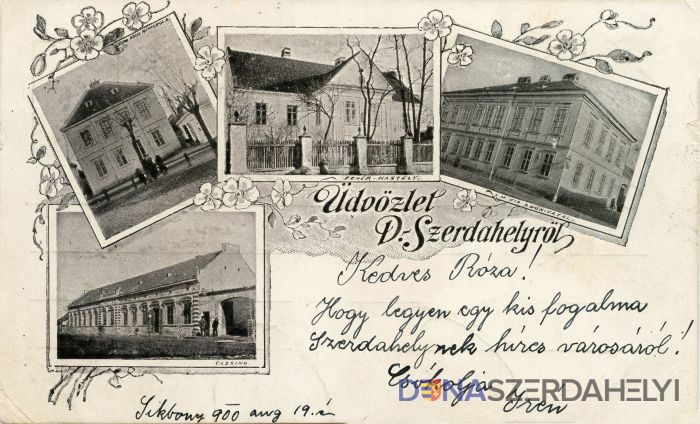 FEHÉR-KASTÉLY.
CASSINO
Üdvözlet
D.-Szerdahelyről
Kedves Róza!
Hogy legyen egy kis fogalma
Szerdahelynek híres városáról!
Csókolja
Irén
Sikbony 900 aug 19.én
DUNASZERDAHELYI